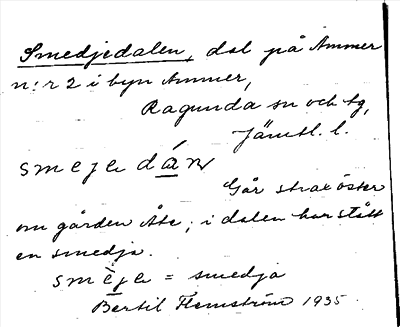 Smedjedalen, dal på Ammer
n:r 2 i byn Ammer,
Ragunda sn och tg,
Jämtl. l.
smejedán
Går strax öster
om gården Åte; i dalen har stått
en smedja.
smèje = smedja
Bertil Flemström 1935